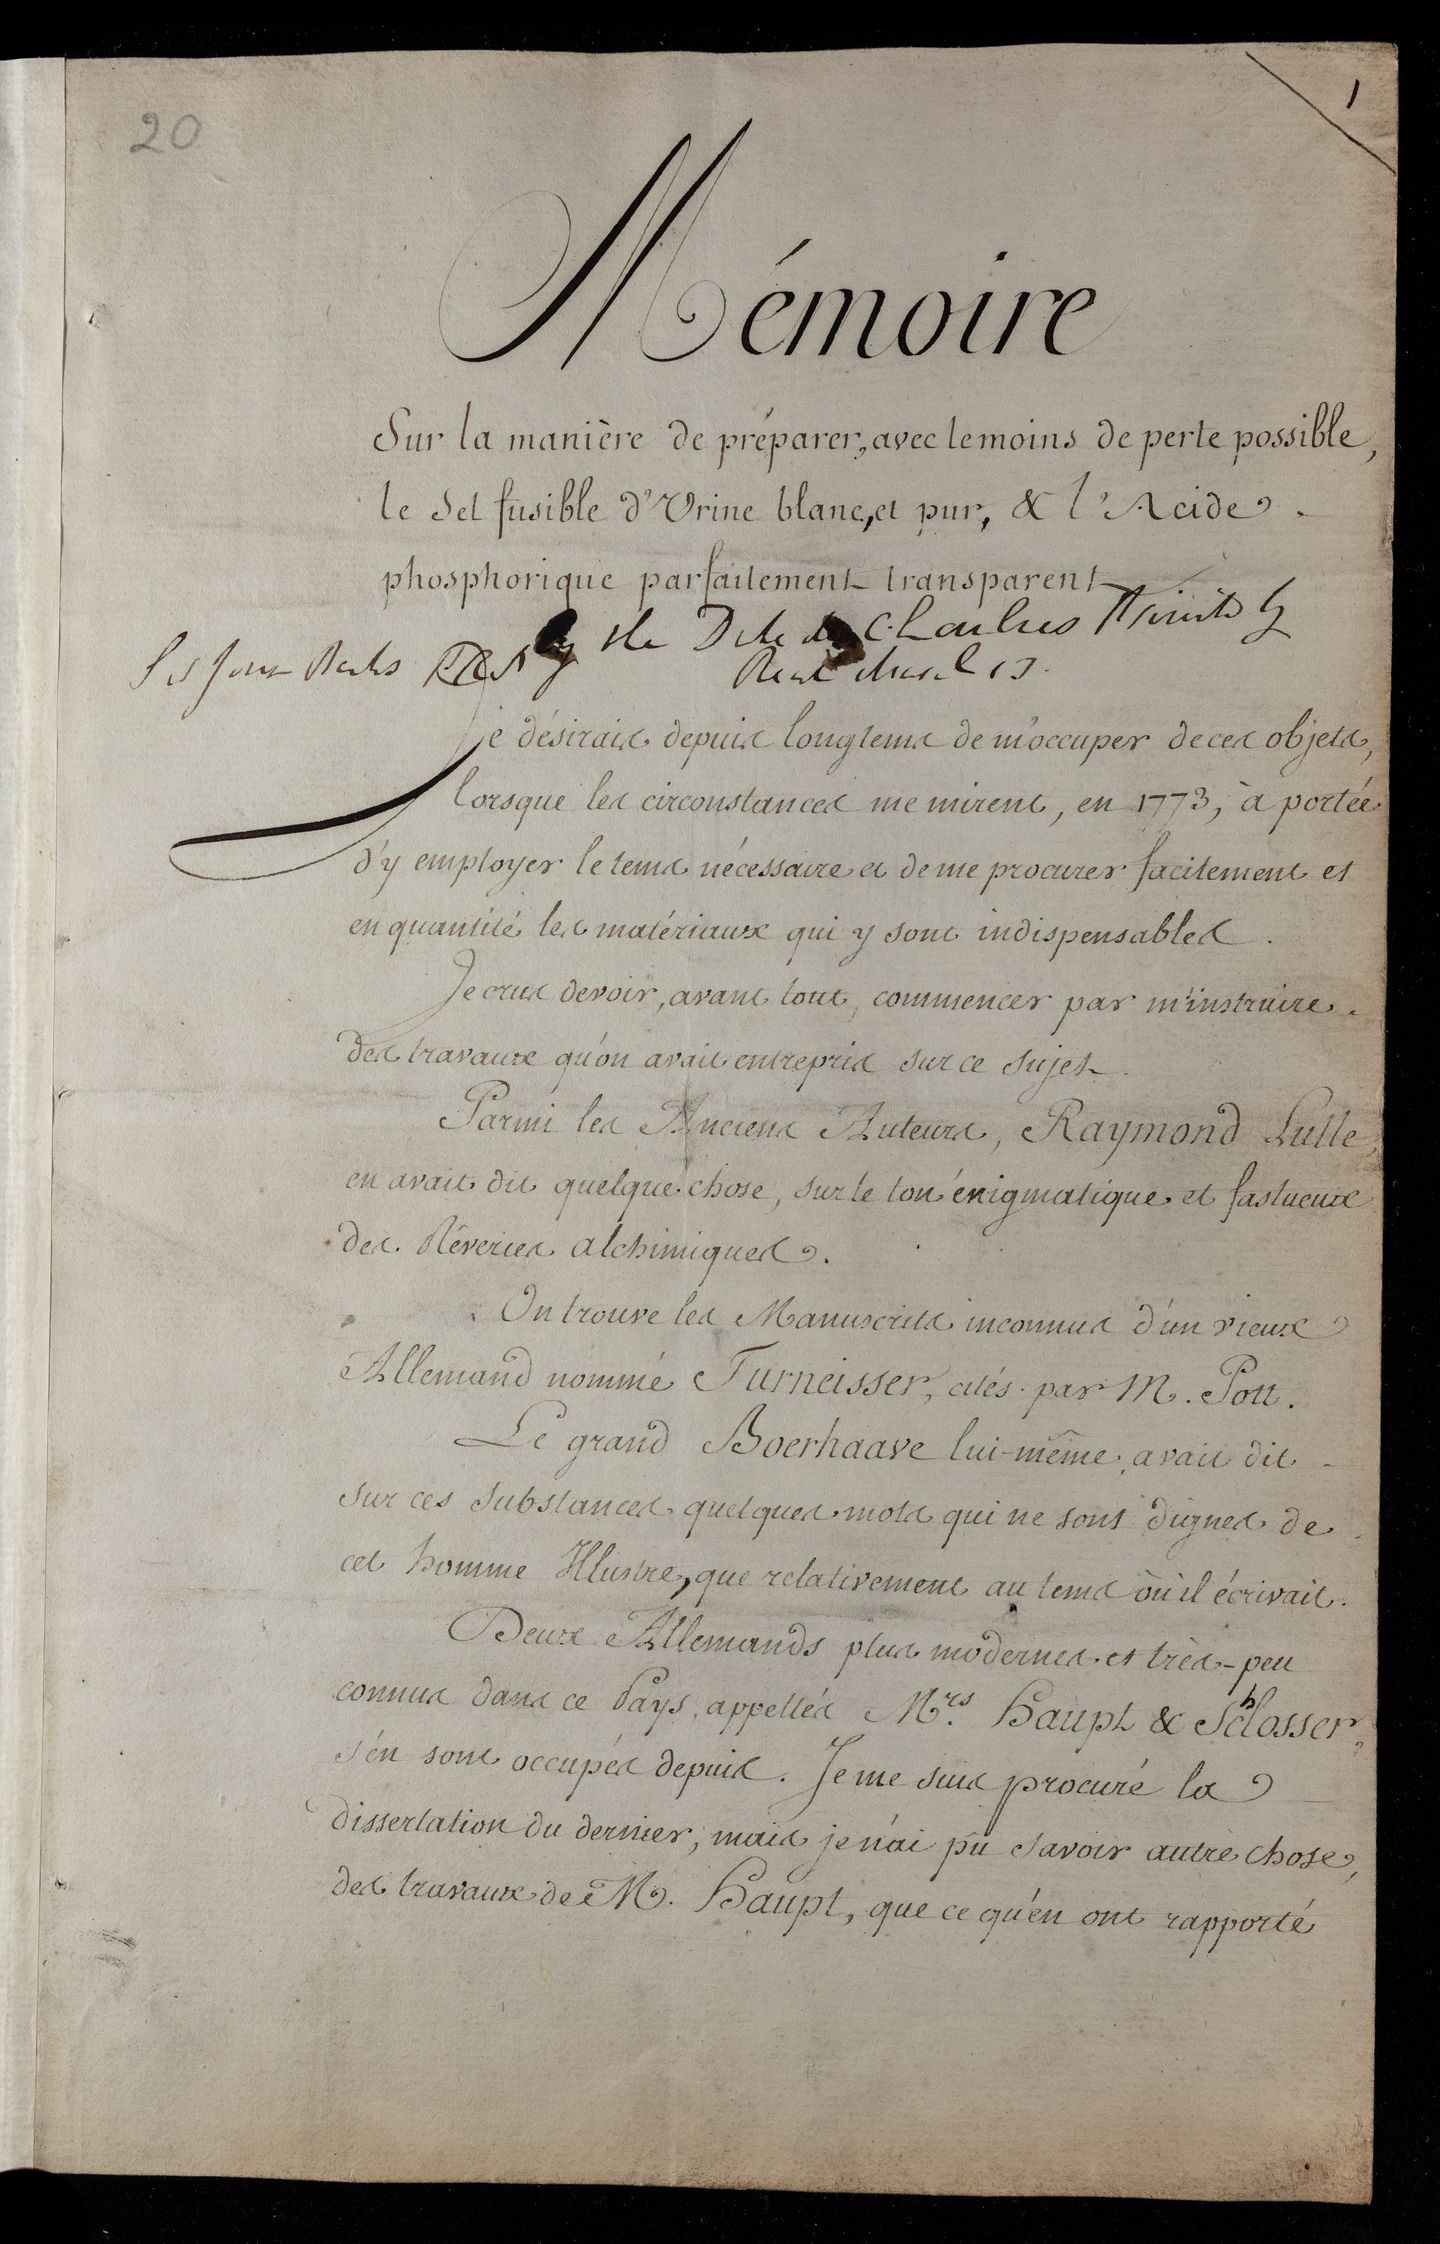 20
1
Mémoire
Sur la manière de préparer, avec le moins de perte possible,
le Sel fusible d'Urine blanc, et pur, & l'Acide
phosphorique parfaitement transparent
Je désirais depuis longtems de m'occuper de ces objets,
lorsque les circonstances me mirent, en 1773, à portée
d'y employer le tems nécessaire et de me procurer facilement et
en quantité les matériaux qui y sont indispensables.
Je crus devoir, avant tout, commencer par m'instruire
des travaux qu'on avait entrepris sur ce sujet.
Parmi les Anciens Auteurs, Raymond Lulle,
en avait dit quelque chose, sur le ton énigmatique et fastueux
des Rêveries alchimiques.
On trouve les Manuscrits inconnus d'un vieux
Allemand nommé Turneisser, cités par M. Pott.
Le grand Boerhaave lui-même, avait dit
sur ces substances quelques mots qui ne sont dignes de
cet homme Illustre, que relativement au tems où il écrivait.
Deux Allemands plus modernes et très-peu
connus dans ce Pays, appellés Mrs. Haupt & Schlosser,
s'en sont occupés depuis. Je me suis procuré la
dissertation du dernier, mais je n'ai pû savoir autre chose,
des travaux de M. Haupt, que ce qu'en ont rapporté